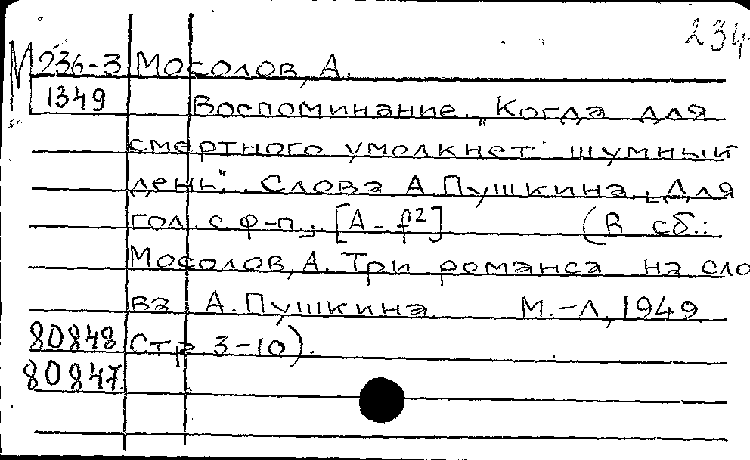 234
М 236-3 Мосолов, А.
1349 Воспоминание. „Когда для
смертного умолкнет шумный
день". Слова А. Пушкина. [Для
гол. с ф-п.]. [A - f²] (В сб.:
Мосолов, А. Три романса на сло
ва А. Пушкина. М.-Л, 1949
80848 Стр 3-10).
80847